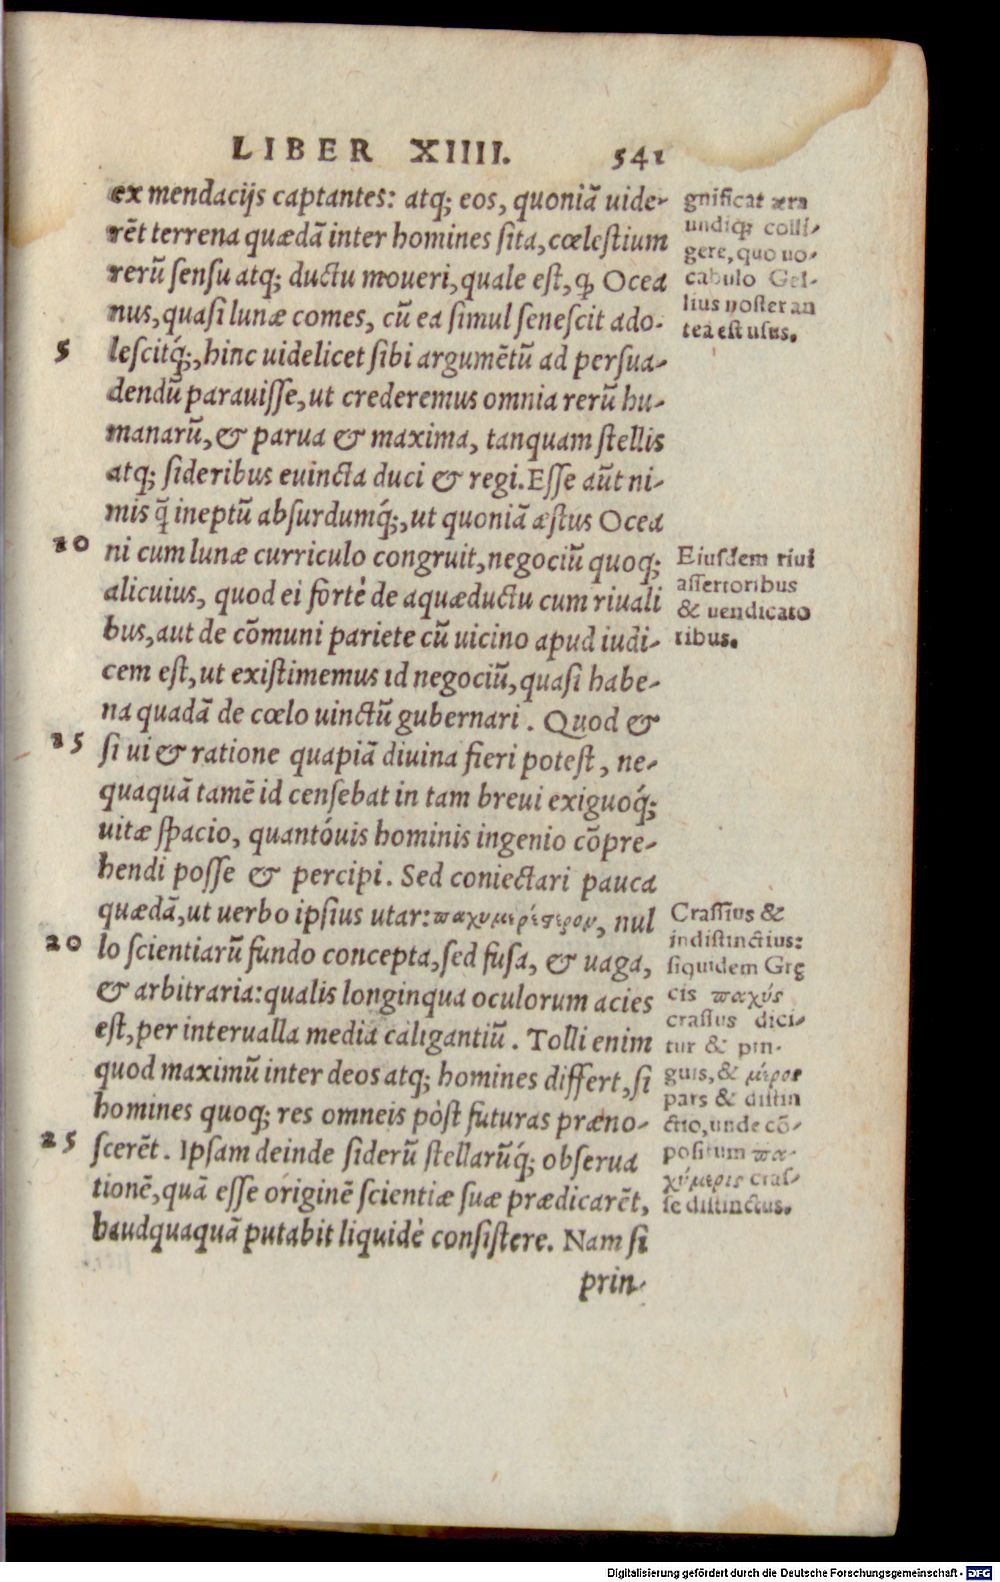 LIBER XIIII. 541
ex mendacijs captantes: atq; eos, quoniã uide-
rẽt terrena quædã inter homines sita, cœlestium
rerũ sensu atq; ductu moueri, quale est, ꝙ Ocea
nus, quasi lunæ comes, cũ ea simul senescit ado-
5 lescitq́;, hinc uidelicet sibi argumẽtũ ad persua-
dendũ parauisse, ut crederemus omnia rerũ hu-
manarũ, & parua & maxima, tanquam stellis
atq; sideribus euincta duci & regi. Esse aũt ni-
mis q̃ ineptũ absurdumq́;, ut quoniã æstus Ocea
10 ni cum lunæ curriculo congruit, negociũ quoq;
alicuius, quod ei fortè de aquæductu cum riuali
bus, aut de cõmuni pariete cũ uicino apud iudi-
cem est, ut existimemus id negociũ, quasi habe-
na quadã de cœlo uinctũ gubernari. Quod &
15 si ui & ratione quapiã diuina fieri potest, ne-
quaquã tamẽ id censebat in tam breui exiguoq́;
uitæ spacio, quantóuis hominis ingenio cõpre-
hendi posse & percipi. Sed coniectari pauca
quædã, ut uerbo ipsius utar: παχυμερέστερον, nul
20 lo scientiarũ fundo concepta, sed fusa, & uaga,
& arbitraria: qualis longinqua oculorum acies
est, per interualla media caligantiũ. Tolli enim
quod maximũ inter deos atq; homines differt, si
homines quoq; res omneis pòst futuras præno-
25 scerẽt. Ipsam deinde siderũ stellarũq́; obserua
tionẽ, quã esse originẽ scientiæ suæ prædicarẽt,
haudquaquã putabit liquidè consistere. Nam si
prin-
gnificat æra
undiq; colli-
gere, quo uo-
cabulo Gel-
lius noster an
tea est usus.
Eiusdem riui
assertoribus
& uendicato
ribus.
Crassius &
indistinctius:
siquidem Gręcis παχύς
crassus dici-
tur & pin-
guis, & μέρος
pars & distin
ctio, unde cõ-
positum πα-
χύμερις cras-
se distinctus.
Digitalisierung gefördert durch die Deutsche Forschungsgemeinschaft - DFG